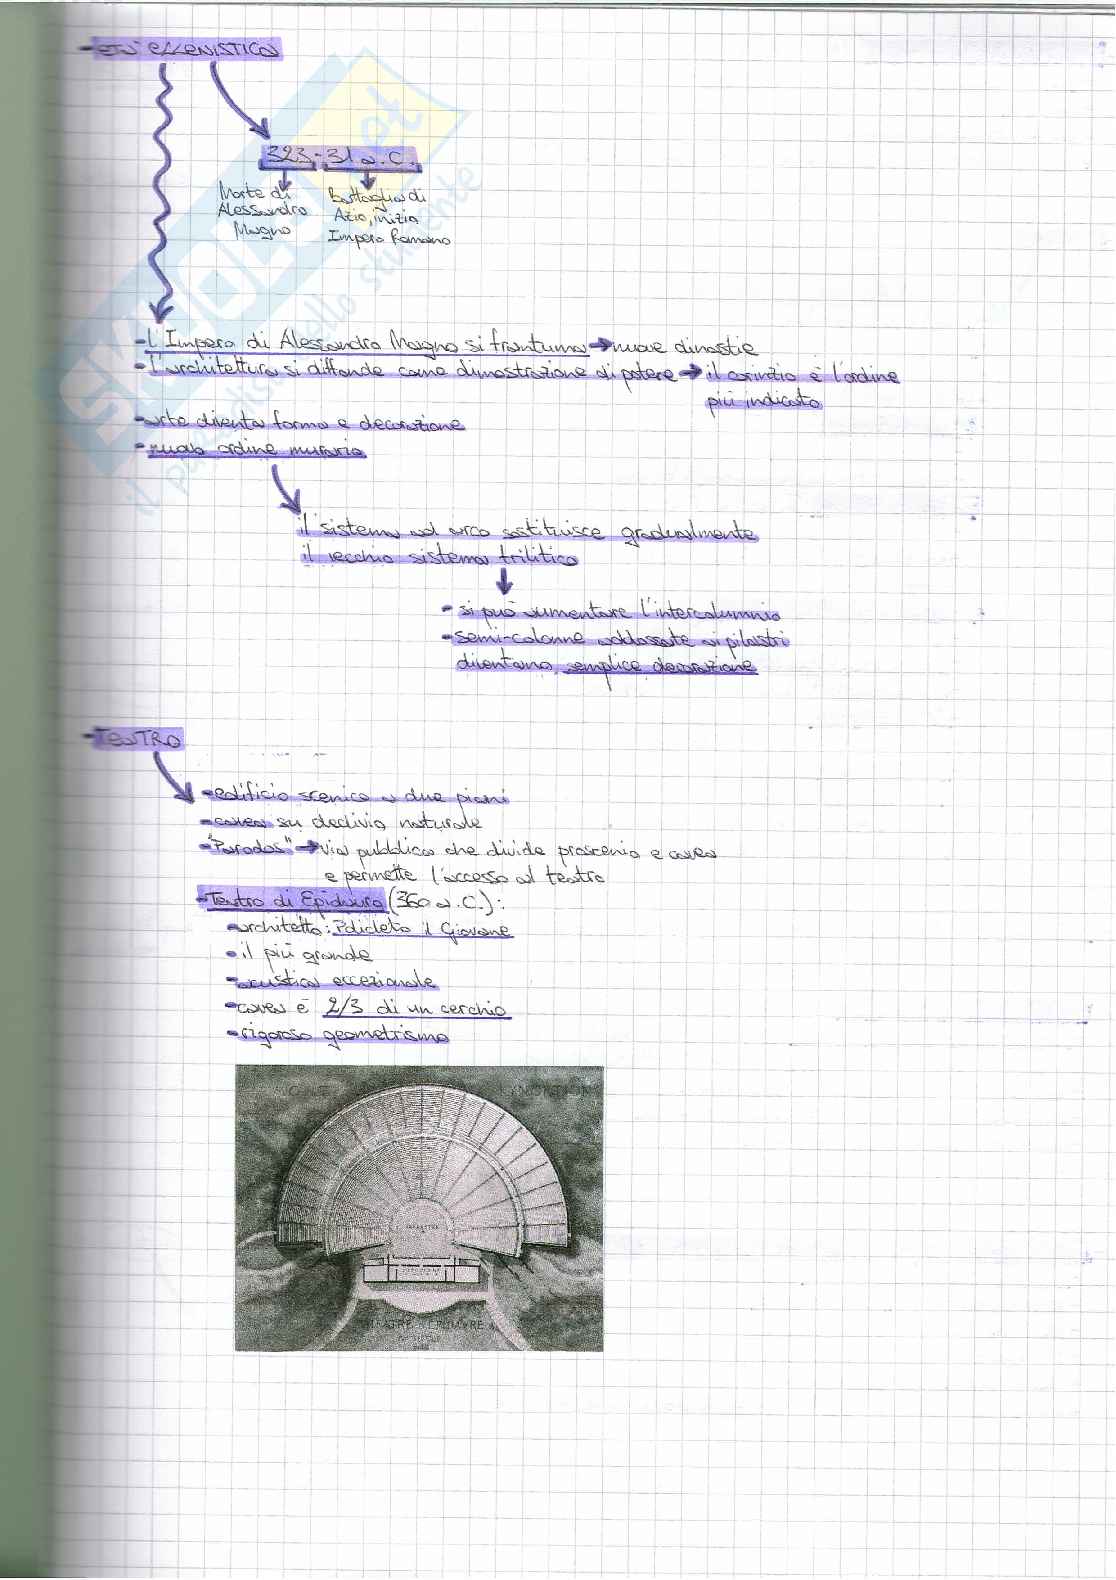 - età ELLENISTICA
323-31 a.C.
Morte di Alessandro Magno
Battaglia di Azio, inizio Impero Romano
- l'Impero di Alessandro Magno si frantuma → nuove dinastie
- l'architettura si diffonde come dimostrazione di potere → il corinzio è l'ordine
più indicato
- arte diventa forma e decorazione
- nuovo ordine murario
il sistema ad arco sostituisce gradualmente
il vecchio sistema trilitico
- si può aumentare l'intercolumnio
- semi-colonne addossate ai pilastri
diventano semplice decorazione
- TEATRO
- edificio scenico a due piani
- cavea su declivio naturale
- "Parodos" → via pubblica che divide proscenio e cavea
e permette l'accesso al teatro
- Teatro di Epidauro (360 a.C.):
- architetto: Policleto il Giovane
- il più grande
- acustica eccezionale
- cavea è 2/3 di un cerchio
- rigoroso geometrismo
SKUOLA.net
il paradiso dello studente